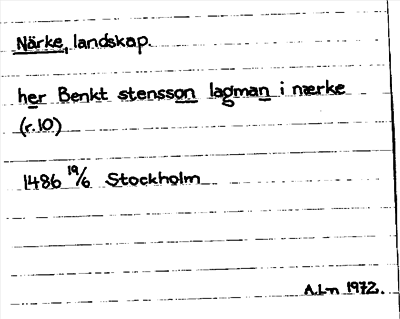 Närke, landskap.
her Benkt stensson lagman i nærke
(r.10)
1486 19/6 Stockholm
A.L-n 1972.